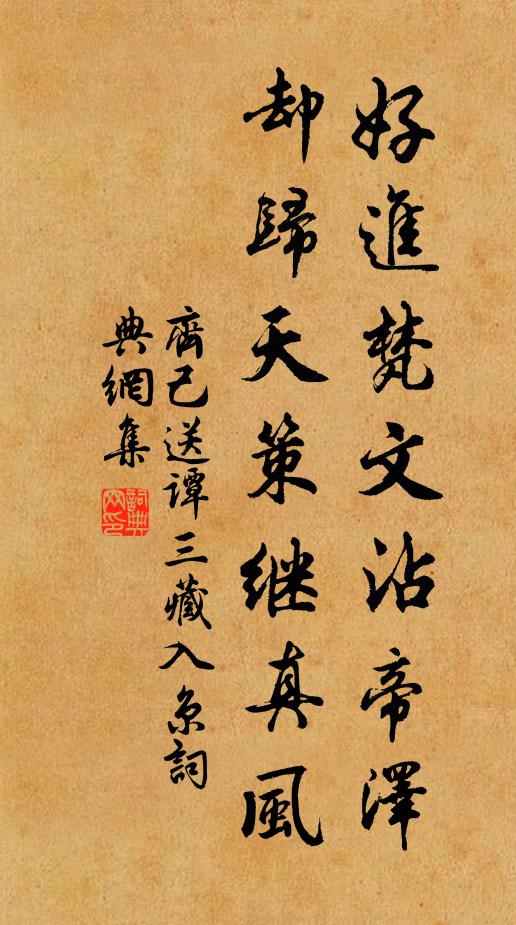 好進梵文沾帝澤
却歸天策继真風
齊己送谭三藏入京詞
典網集
詞典网印